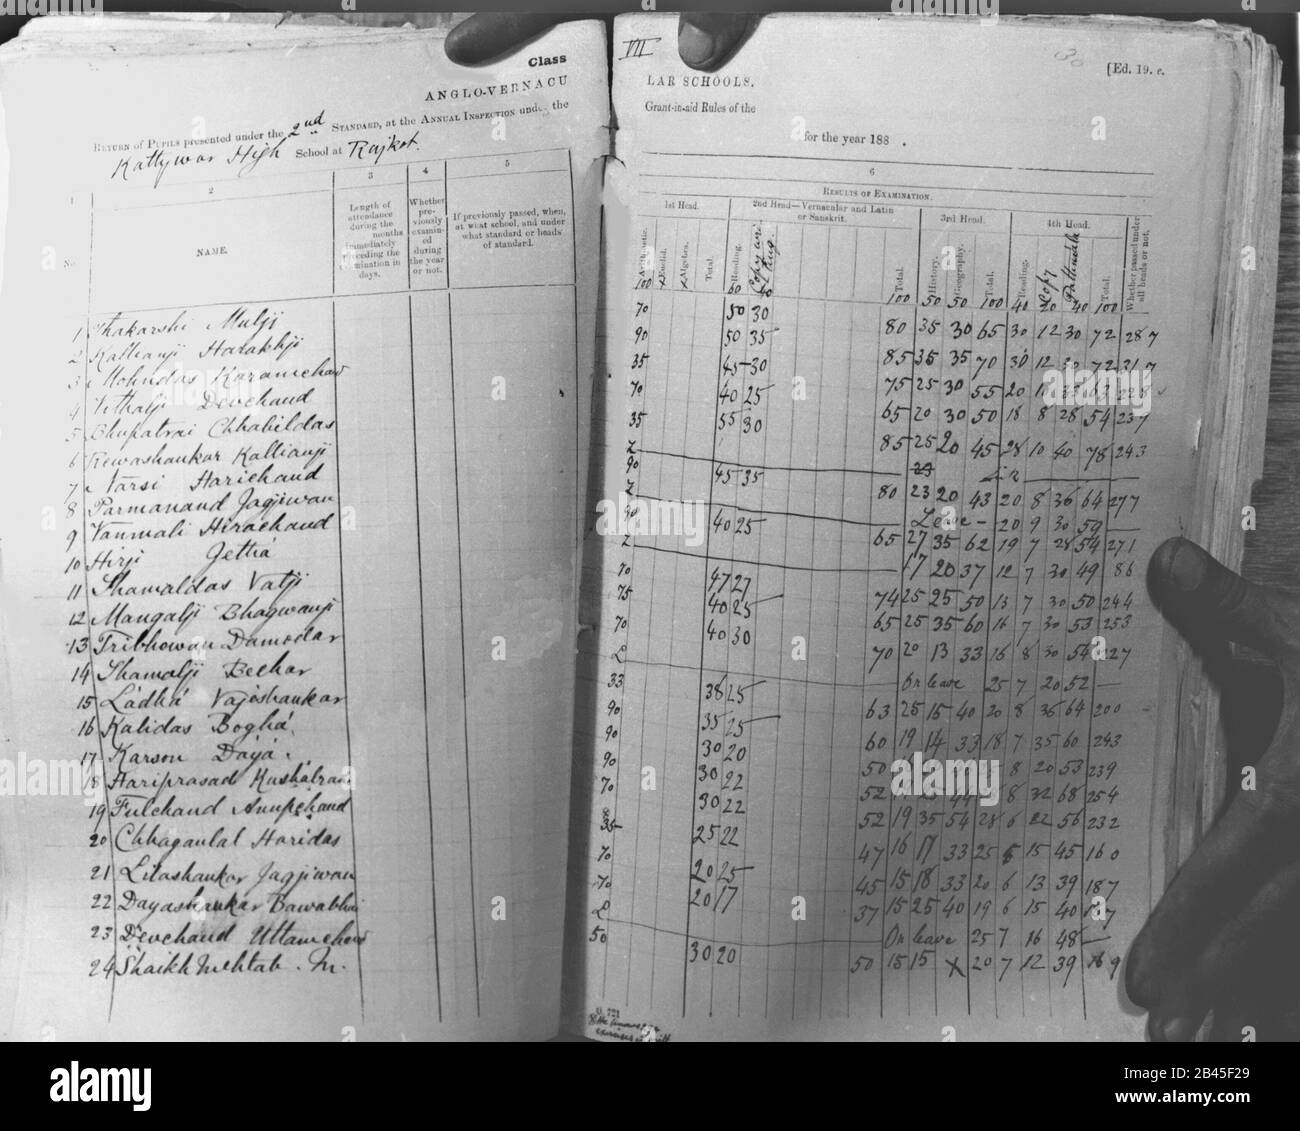 Class
ANGLO-VERNACU
RETURN of PUPILS presented under the 2nd STANDARD, at the ANNUAL INSPECTION under the
Kattywar High School at Rajkot.
1 2 3 4 5
No. NAME.
Length of attendance during the months immediately preceding the examination in days.
Whether previously examined during the year or not.
If previously passed, when, at what school, and under what standard or heads of standard.
1 Thakarshi Mulji
2 Kallianji Harakhji
3 Mohndas Karamchand
4 Vithalji Devchand
5 Bhupatrai Chhabildas
6 Rewashankar Kallianji
7 Narsi Harichand
8 Parmanand Jagjiwan
9 Vanmali Hirachand
10 Hirji Jethá
11 Shamaldas Valji
12 Mangalji Bhagwanji
13 Tribhowan Damodar
14 Shamalji Bechar
15 Ládhá Vajishankar
16 Kalidas Boghá
17 Karson Dayá.
18 Hariprasad Kushalrai
19 Fulchand Anupchand
20 Chhaganlal Haridas
21 Lilashankar Jagjiwan
22 Dayashankar Bawabhai
23 Devchand Uttamchand
24 Shaikh Mehtab. M.
VII
30
[Ed. 19. e.
LAR SCHOOLS.
Grant-in-aid Rules of the
for the year 188 .
6
RESULTS OF EXAMINATION.
1st Head. 2nd Head—Vernacular and Latin or Sanskrit. 3rd Head. 4th Head. Whether passed under all heads or not.
Arithmetic. Euclid. Algebra. Total. Reading. Total. History. Geography. Total. Reading. Copy Total.
100 x x 60 100 50 50 100 40 20 40 100
70 50 30 80 35 30 65 30 12 30 72 287
90 50 35 85 35 35 70 30 12 30 72 317
35 45 30 75 25 30 55 20 63 228
70 40 25 65 20 30 50 18 8 28 54 237
35 55 30 85 25 20 45 28 10 40 78 243
L
90 45 35 80 23 20 43 20 8 36 64 277
L Leave 20 9 30 59
90 40 25 65 27 35 62 19 7 28 54 271
L 17 20 37 12 7 30 49 86
70 47 27 74 25 25 50 13 7 30 50 244
75 40 25 65 25 35 60 16 7 30 53 253
70 40 30 70 20 13 33 16 8 30 54 227
L On leave 25 7 20 52
33 38 25 63 25 15 40 20 8 36 64 200
90 35 25 60 19 14 33 18 7 35 60 243
90 30 20 50 8 20 53 239
90 30 22 52 44 8 32 68 254
70 30 22 52 19 35 54 28 6 22 56 232
35 25 22 47 16 17 33 25 5 15 45 160
70 20 25 45 15 18 33 20 6 13 39 187
70 20 17 37 15 25 40 19 6 15 40
L On leave 25 7 16 48
50 30 20 50 15 15 x 20 7 12 39 169
alamy
Image ID: 2B45F29
www.alamy.com